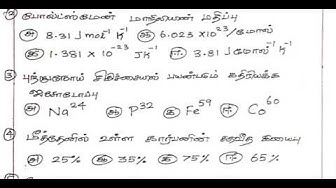 2) போல்ட்ஸ்மேன் மாறிலியின் மதிப்பு
அ) 8.31 J mol⁻¹ K⁻¹ ஆ) 6.023 x 10²³ /மோல்
இ) 1.381 x 10⁻²³ JK⁻¹ ஈ) 3.81 J மோல்⁻¹ K⁻¹
3) புற்றுநோய் சிகிச்சையில் பயன்படும் கதிரியக்க
ஐசோடோப்பு
அ) Na²⁴ ஆ) P³² இ) Fe⁵⁹ ஈ) Co⁶⁰
4) மீத்தேனில் உள்ள கார்பனின் சதவீத இயைபு
அ) 25% ஆ) 35% இ) 75% ஈ) 65%